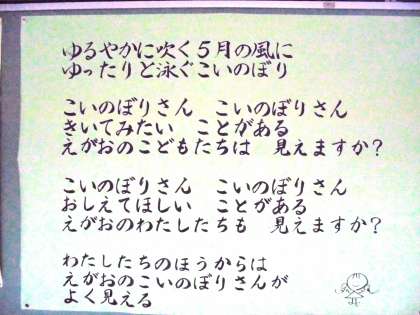 ゆるやかに吹く５月の風に
ゆったりと泳ぐこいのぼり
こいのぼりさん　こいのぼりさん
きいてみたい　ことがある
えがおのこどもたちは　見えますか？
こいのぼりさん　こいのぼりさん
おしえてほしい　ことがある
えがおのわたしたちも　見えますか？
わたしたちのほうからは
えがおのこいのぼりさんが
よく見える